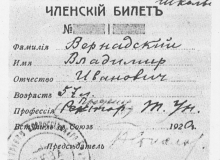 ЧЛЕНСКІЙ БИЛЕТЪ
№
Фамилія Вернадский
Имя Владимир
Отчество Иванович
Возрастъ 57 л.
Профессія Т. Ун.
Вступилъ въ Союзъ 192
Председатель